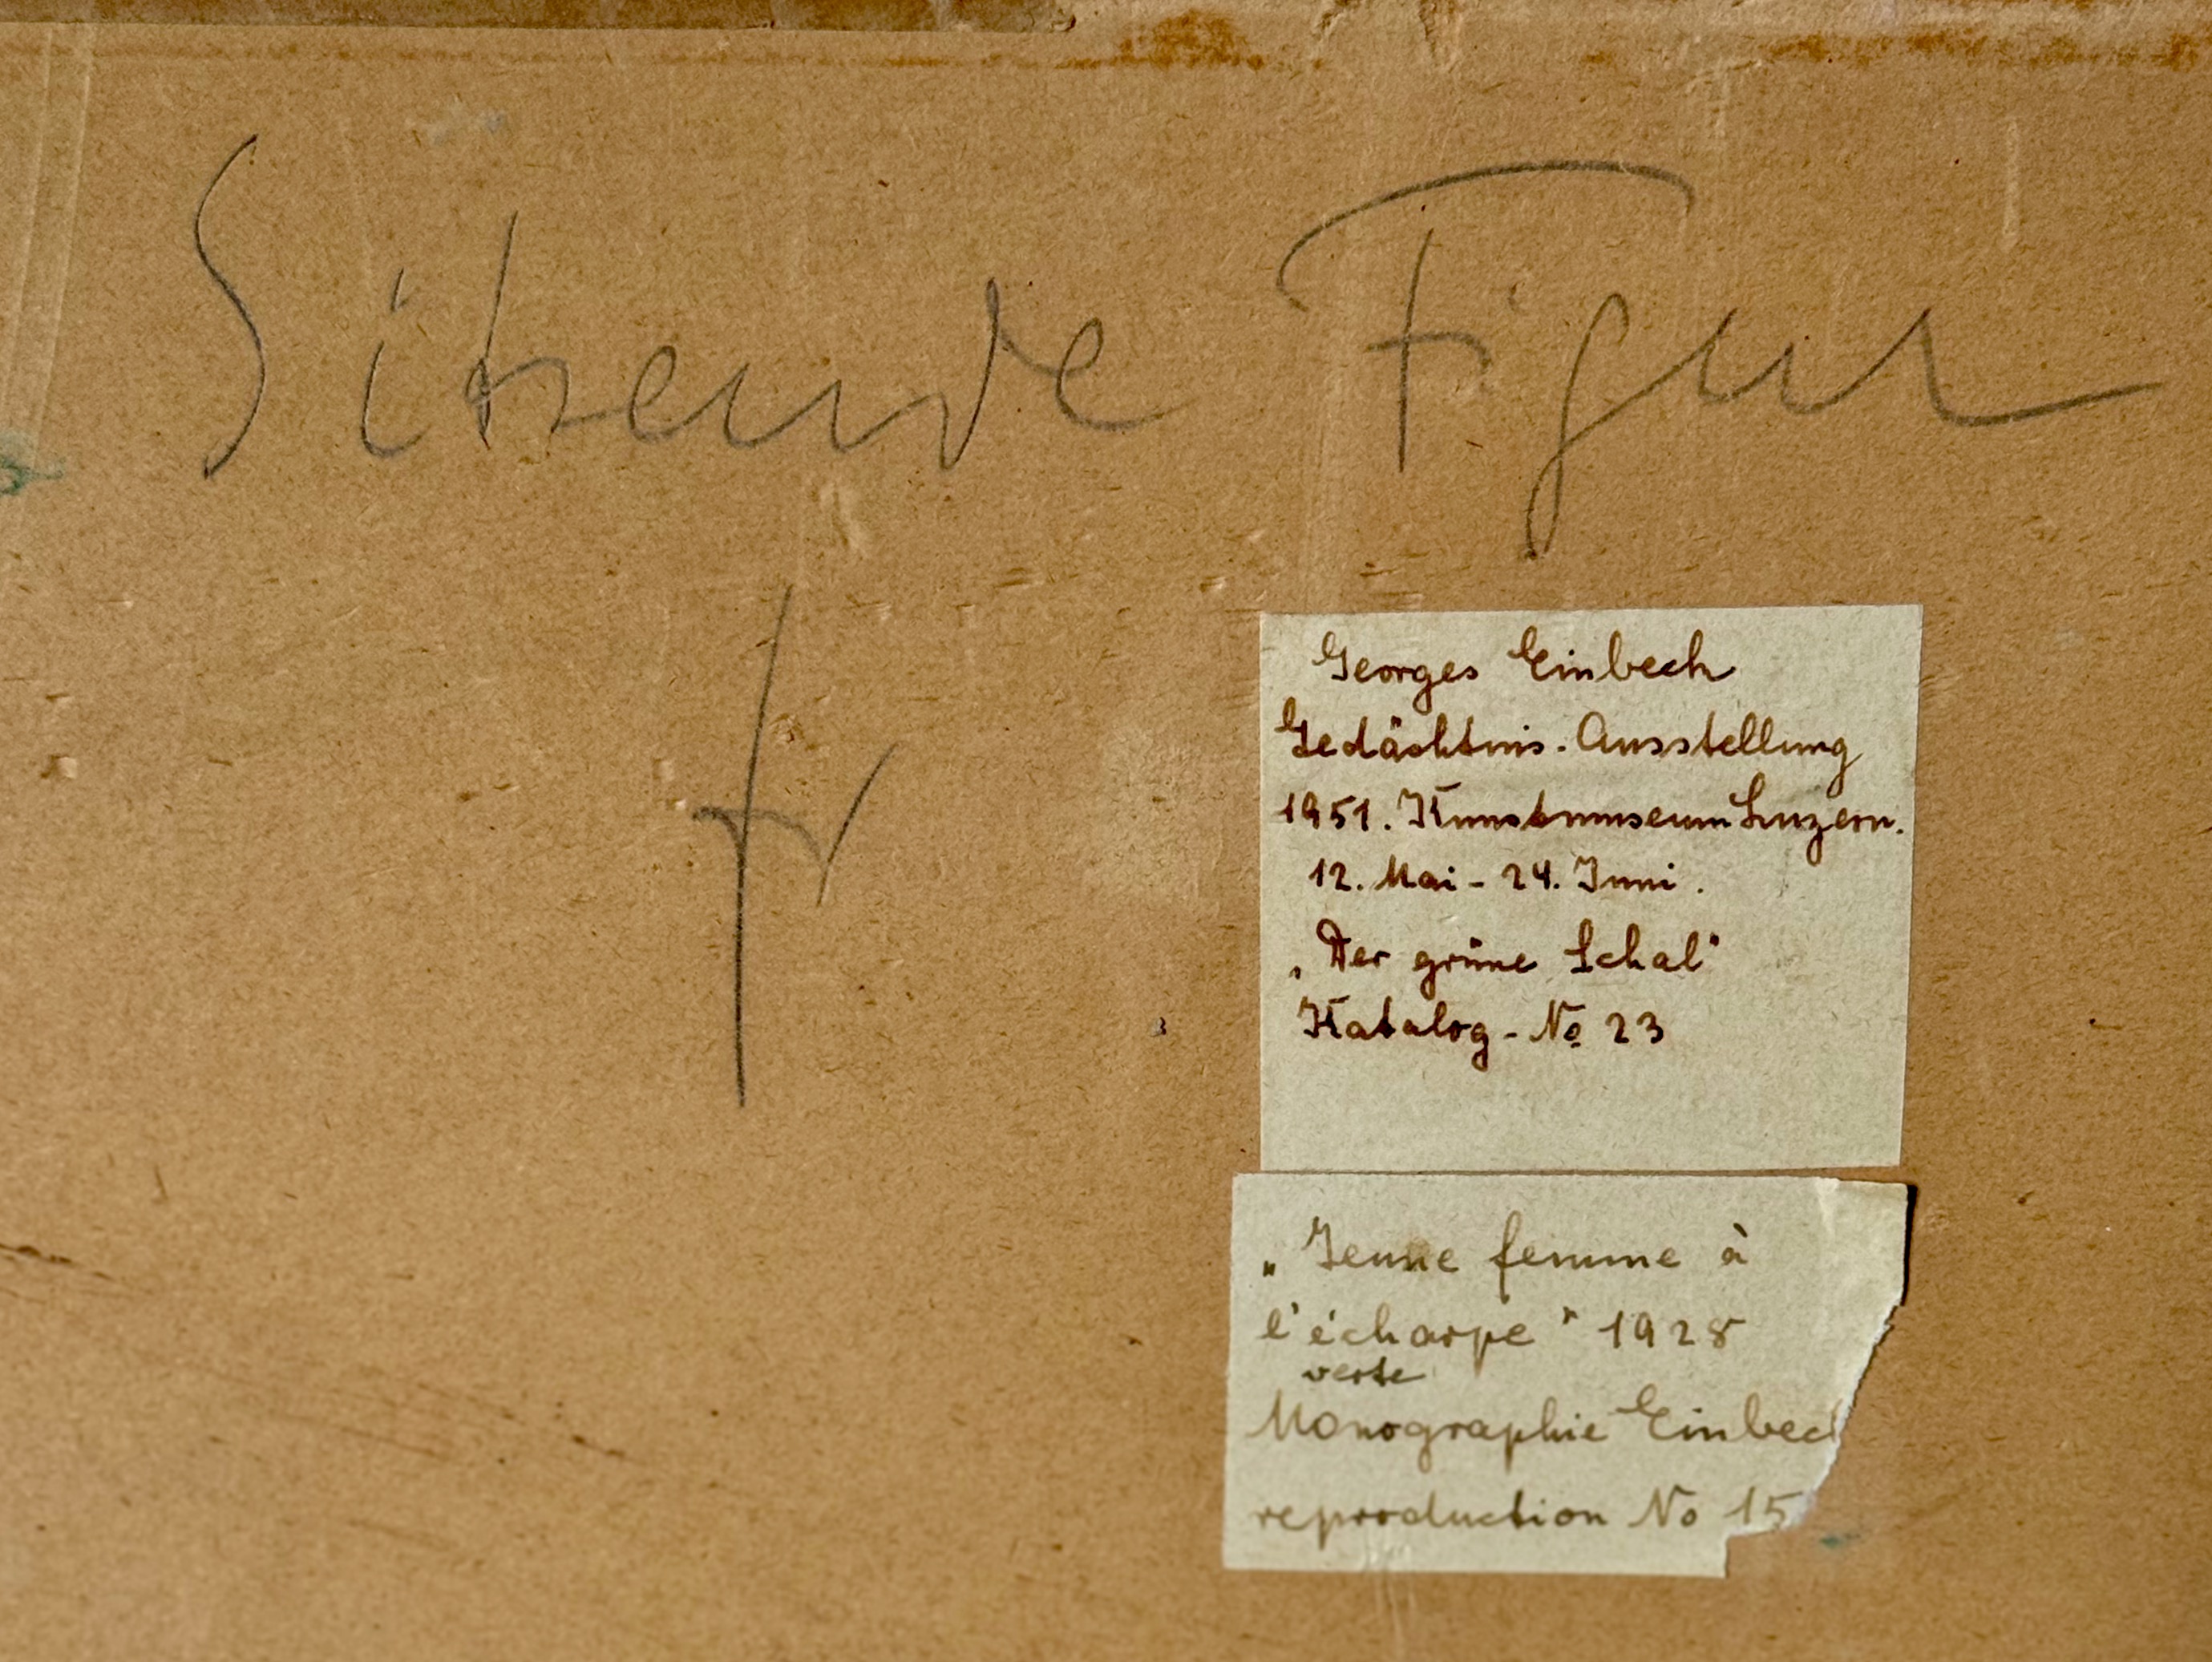 Sitzende Figur
fr
Georges Einbeck
Gedächtnis-Ausstellung
1951. Kunstmuseum Luzern.
12. Mai - 24. Juni.
„Der grüne Schal"
Katalog - No 23
„Jeune femme à
l'écharpe" 1928
verte
Monographie Einbeck
reproduction No 15